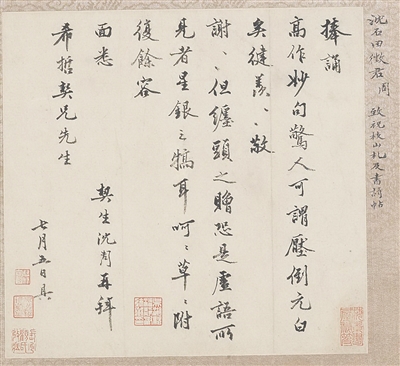 沈石田徵君周 致祝枝山札
捧誦
高作妙句驚人可謂壓倒元白
矣健羨〻〻敬
謝〻〻但纏頭之贈恐是虛語所
見者星銀之犒耳呵〻草〻附
復餘容
面悉
希哲契兄先生
契生沈周再拜
七月五日具